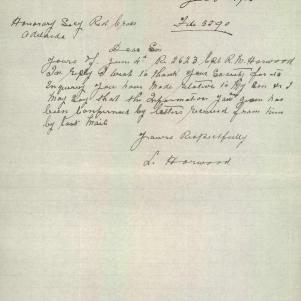 Honorary Secy Red Cross
File 5290
Adelaide
Dear Sir
Yours of June 4th R. 2623 Cpl R. M. Horwood
In reply I wish to thank your Society for the
Inquiry you have Made relative to My Son & I
May Say that the Information you given has
been Confirmed by letters received from him
by last Mail
Yours Respectfully
L. Horwood